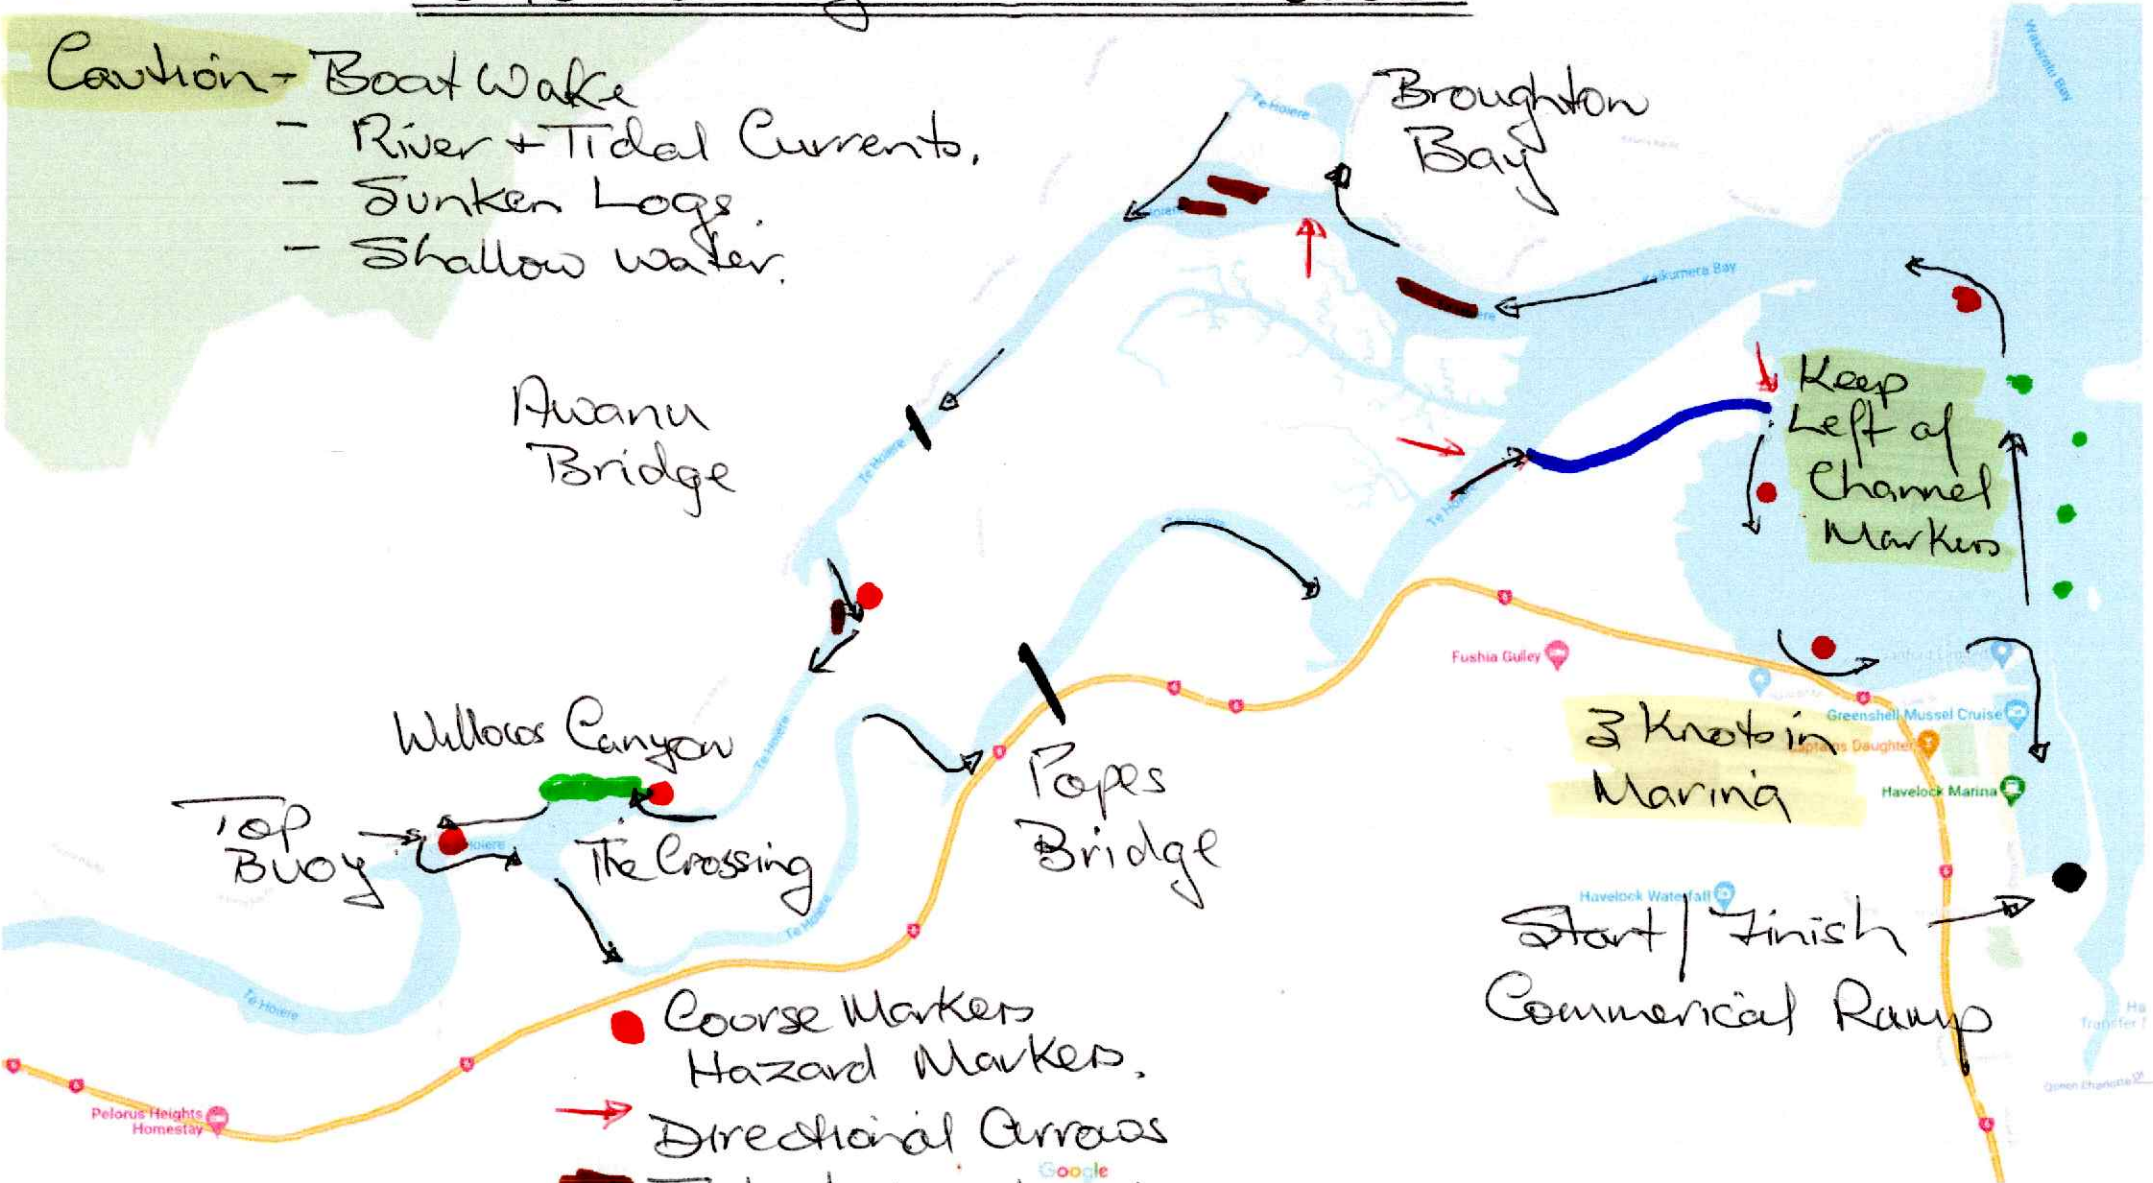 Caution - Boat Wake
- River + Tidal Currents.
- Sunken Logs.
- Shallow water.
Broughton
Bay
Te Hoiere
Wakaretu Bay
Kaikumera Bay
Awanu
Bridge
Te Hoiere
Keep
Left of
Channel
Markers
Te Hoiere
Fushia Gulley
Willows Canyon
Te Hoiere
Top
Buoy
The Crossing
Popes
Bridge
3 Knots in
Marina
Greenshell Mussel Cruise
Captains Daughter
Havelock Marina
Havelock Waterfall
Te Hoiere
Start / Finish
Commerical Ramp
Te Hoiere
Course Markers
Hazard Markers.
Directional Arrows
Pelorus Heights
Homestay
Google
6
6
6
6
6
6
6
6
6
6
6